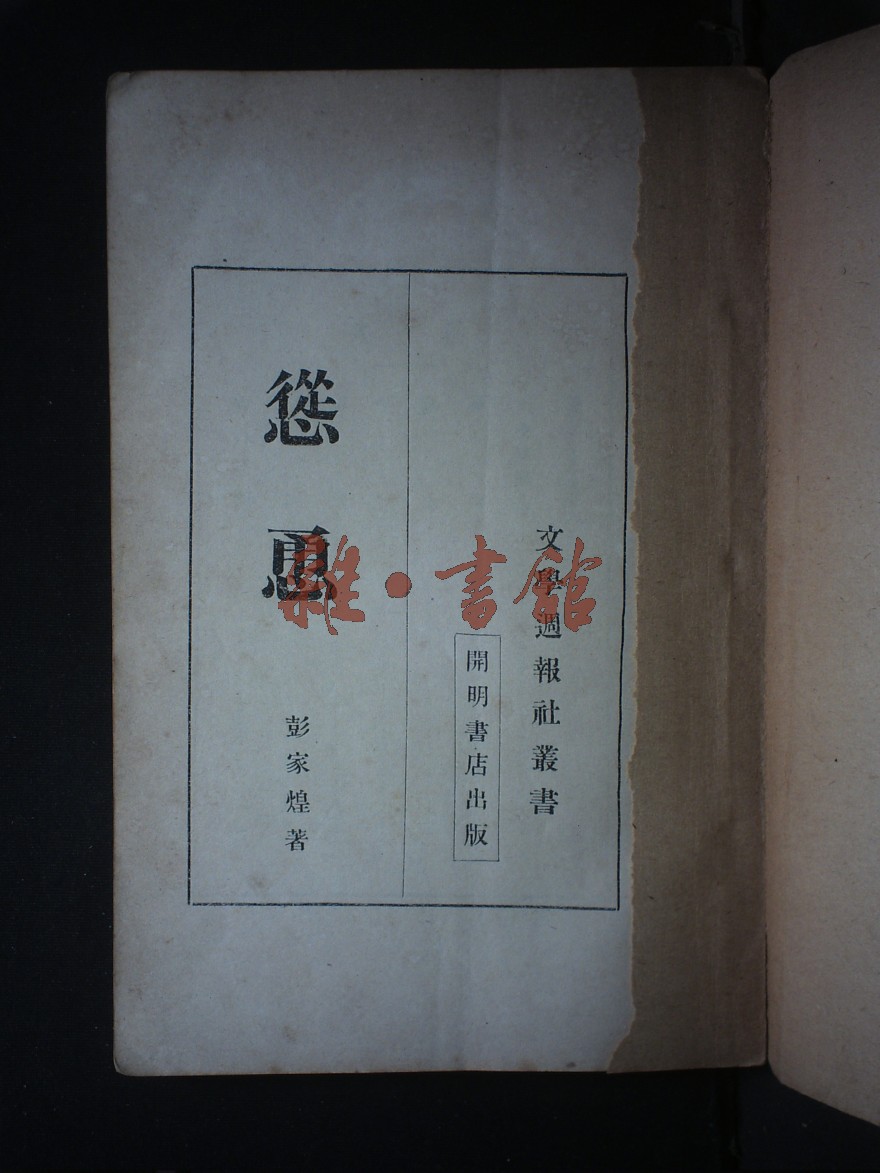 文學週報社叢書
開明書店出版
慫恿
彭家煌著
雜·書館